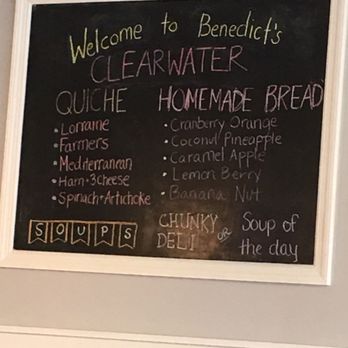 Welcome to Benedict's
CLEARWATER
QUICHE
• Lorraine
• Farmers
• Mediterranean
• Ham + 3 cheese
• Spinach + Artichoke
HOMEMADE BREAD
• Cranberry Orange
• Coconut Pineapple
• Caramel Apple
• Lemon Berry
• Banana Nut
SOUPS
CHUNKY
DELI
OR
Soup of
the day